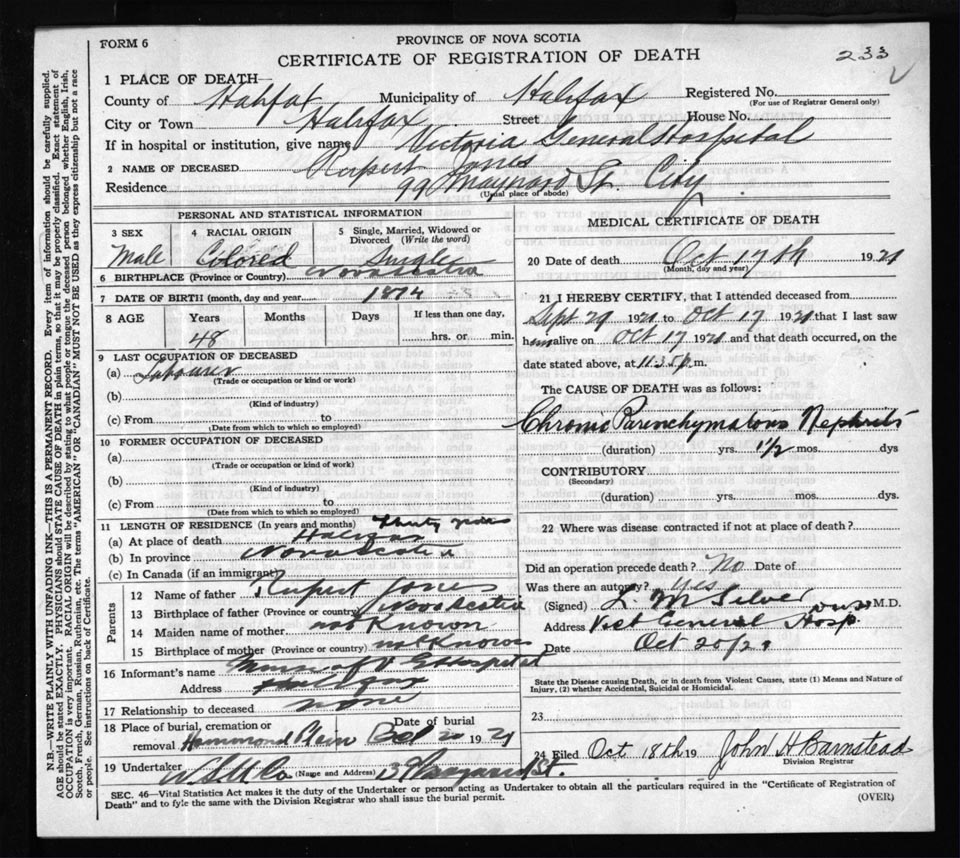 FORM 6
PROVINCE OF NOVA SCOTIA
CERTIFICATE OF REGISTRATION OF DEATH
233
1 PLACE OF DEATH—
County of Halifax Municipality of Halifax Registered No.
(For use of Registrar General only)
City or Town Halifax Street House No.
If in hospital or institution, give name Victoria General Hospital
2 NAME OF DECEASED Rupert Jones
Residence 99 Maynard St. City
(Usual place of abode)
PERSONAL AND STATISTICAL INFORMATION
3 SEX 4 RACIAL ORIGIN 5 Single, Married, Widowed or Divorced (Write the word)
Male Colored Single
6 BIRTHPLACE (Province or Country) Nova Scotia
7 DATE OF BIRTH (month, day and year) 1874
8 AGE Years Months Days If less than one day,
48 hrs. or min.
9 LAST OCCUPATION OF DECEASED
(a) Labourer
(Trade or occupation or kind or work)
(b)
(Kind of industry)
(c) From to
(Date from which to which so employed)
10 FORMER OCCUPATION OF DECEASED
(a)
(Trade or occupation or kind of work)
(b)
(Kind of industry)
(c) From to
(Date from which to which so employed)
11 LENGTH OF RESIDENCE (In years and months) Thirty
(a) At place of death Halifax
(b) In province Nova Scotia
(c) In Canada (if an immigrant)
Parents
12 Name of father Rupert Jones
13 Birthplace of father (Province or country) Nova Scotia
14 Maiden name of mother not Known
15 Birthplace of mother (Province or country) not Known
16 Informant's name Hospital
Address Halifax
17 Relationship to deceased none
18 Place of burial, cremation or removal Hammond Plain Date of burial Oct 20 1921
19 Undertaker (Name and Address)
MEDICAL CERTIFICATE OF DEATH
20 Date of death Oct 17th 1921
(Month, day and year)
21 I HEREBY CERTIFY, that I attended deceased from
Sept 29 1921 to Oct 17 1921 that I last saw
him alive on Oct 17 1921 and that death occurred, on the
date stated above, at 11.35 p.m.
The CAUSE OF DEATH was as follows:
Chronic Parenchymatous Nephritis
(duration) yrs. 1½ mos. dys
CONTRIBUTORY
(Secondary)
(duration) yrs. mos. dys.
22 Where was disease contracted if not at place of death?
Did an operation precede death? No Date of
Was there an autopsy? Yes
(Signed) L. M Silver M.D.
Address Vict General Hosp.
Date Oct 20/21
State the Disease causing Death, or in death from Violent Causes, state (1) Means and Nature of
Injury, (2) whether Accidental, Suicidal or Homicidal.
23
24 Filed Oct 18th 19 John H Barnstead
Division Registrar
SEC. 46—Vital Statistics Act makes it the duty of the Undertaker or person acting as Undertaker to obtain all the particulars required in the "Certificate of Registration of
Death" and to fyle the same with the Division Registrar who shall issue the burial permit.
(OVER)
N.B.—WRITE PLAINLY WITH UNFADING INK—THIS IS A PERMANENT RECORD. Every item of information should be carefully supplied.
AGE should be stated EXACTLY. PHYSICIANS should STATE CAUSE OF DEATH in plain terms, so that it may be properly classified. Exact statement of
OCCUPATION is very important. RACIAL ORIGIN will be described by stating to what people or tongue the deceased person belonged whether English, Irish,
Scotch, French, German, Russian, Ruthenian, etc. The terms "AMERICAN" OR "CANADIAN" MUST NOT BE USED as they express citizenship but not a race
or people. See instructions on back of Certificate.